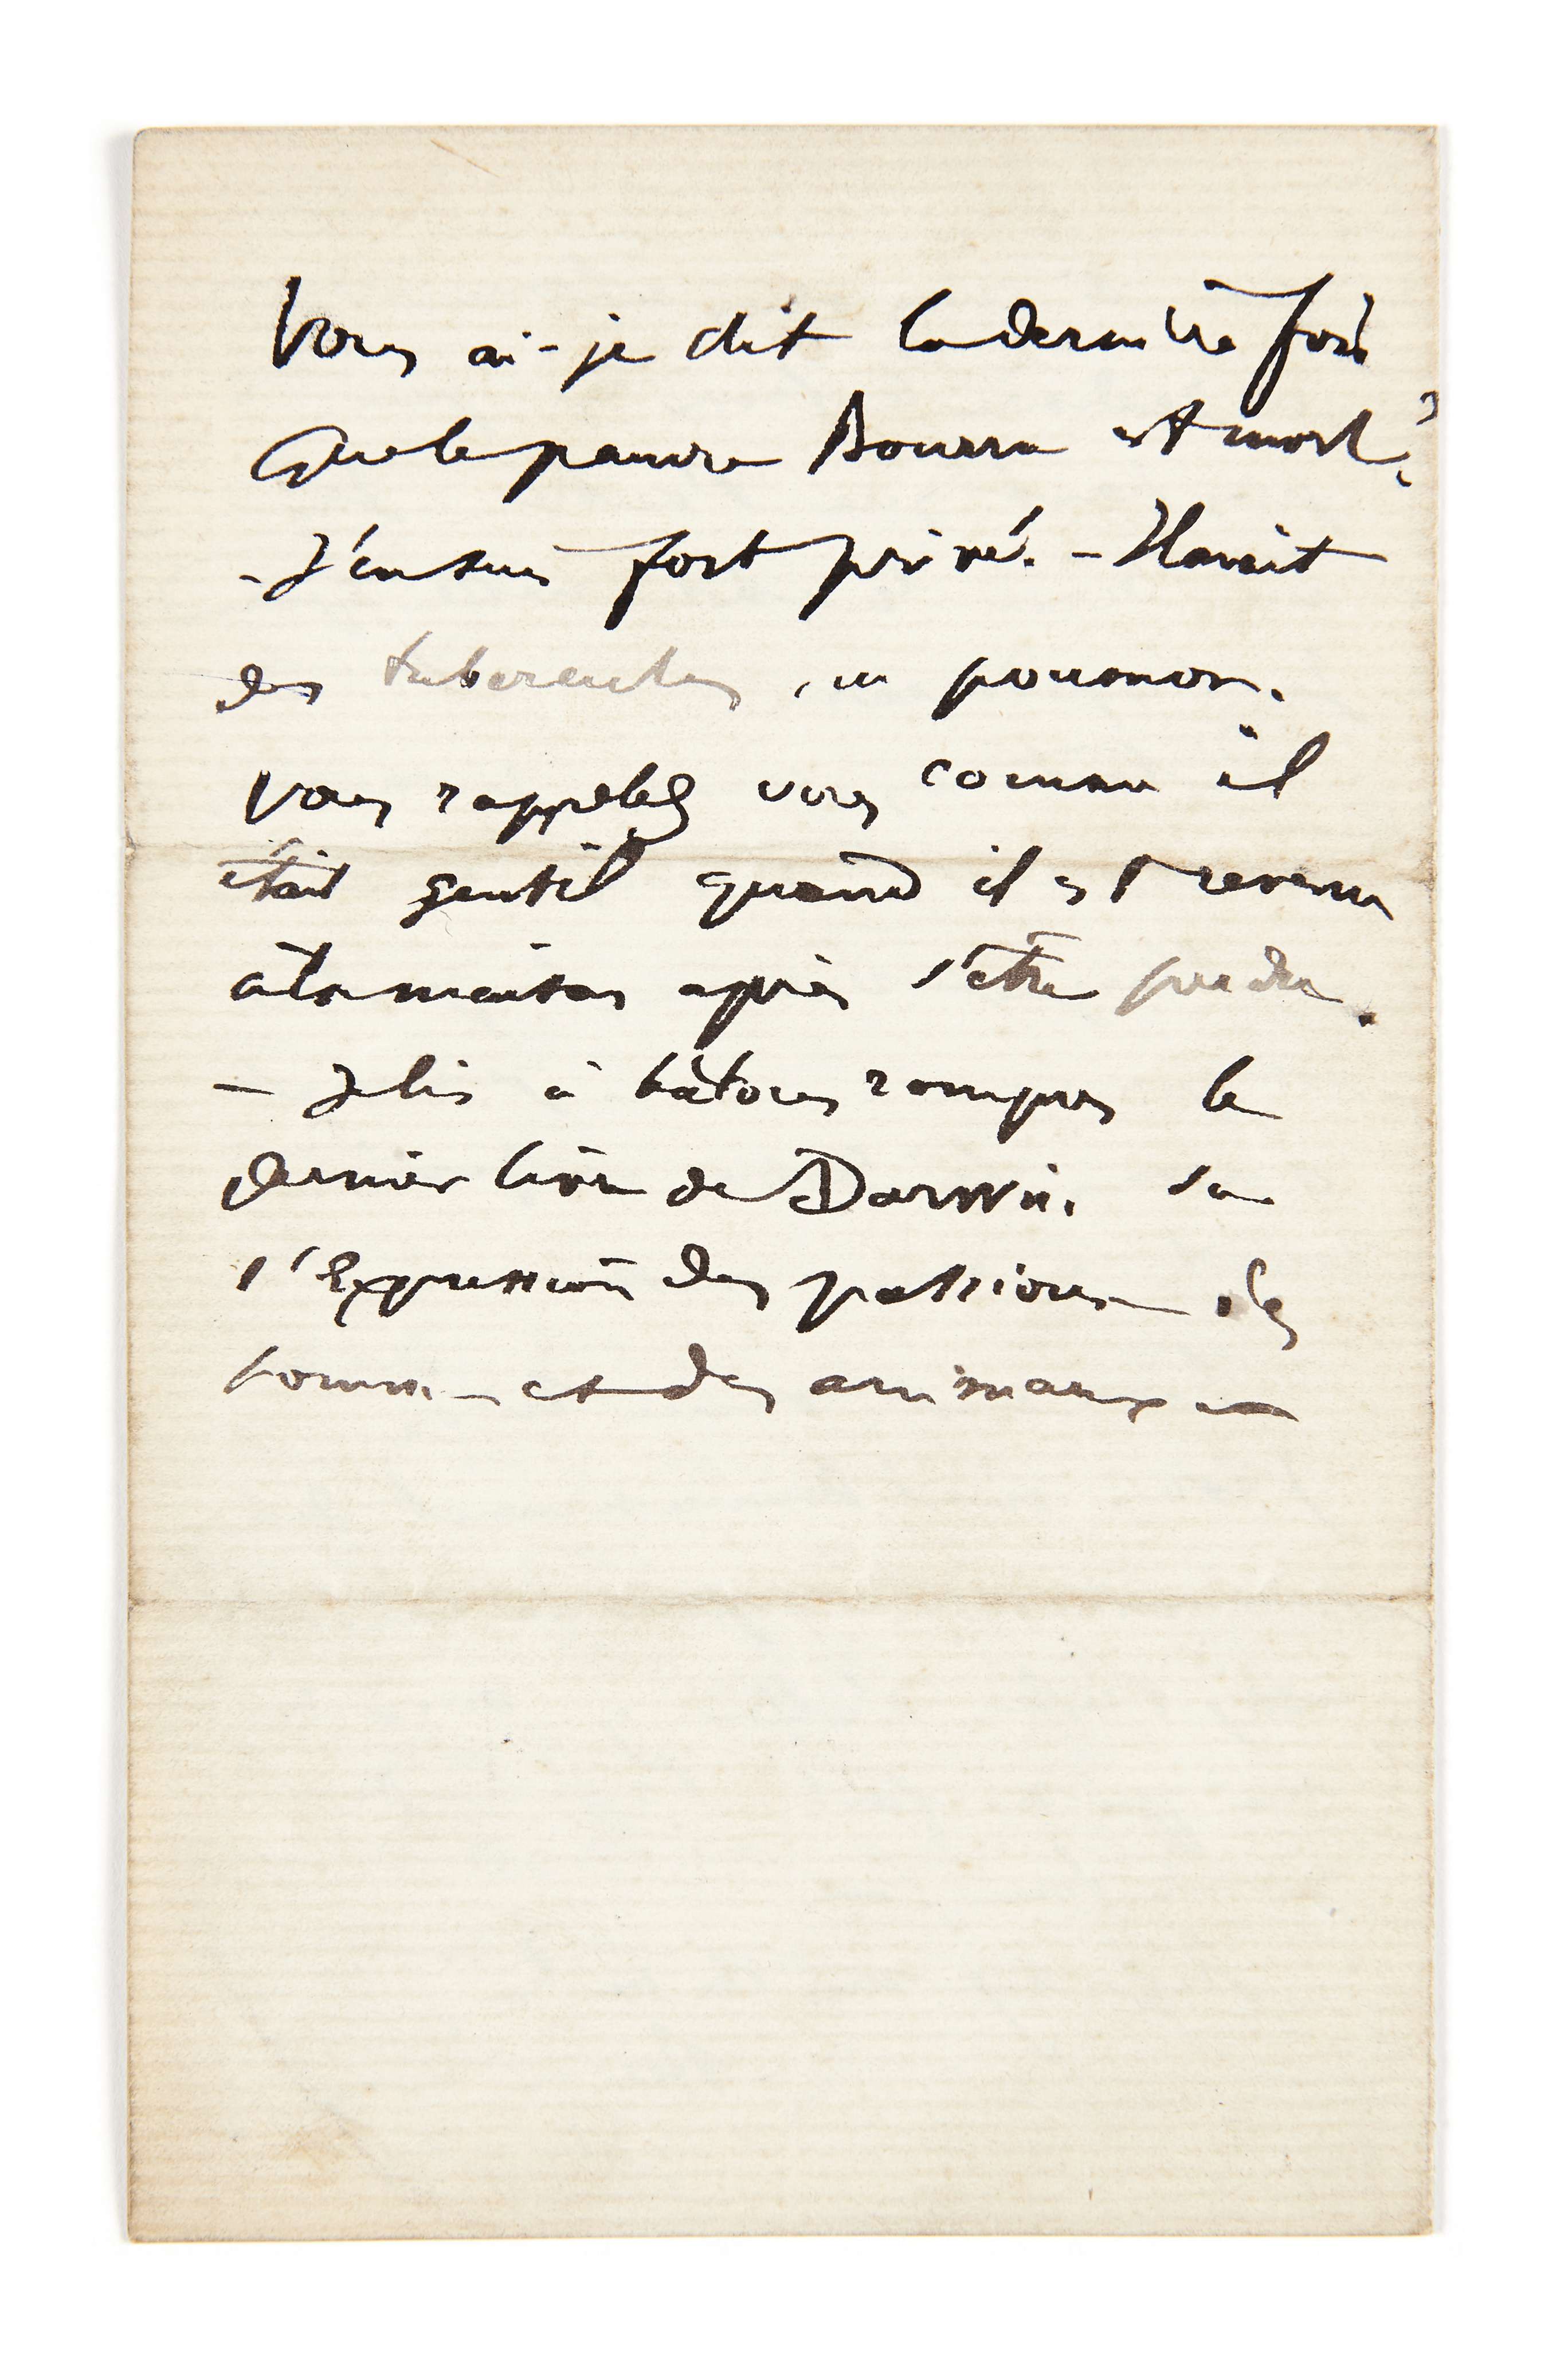 Vous ai-je dit la dernière fois
que le pauvre Bourru est mort?
- J'en suis fort privé. - Il avait
des tubercules au poumon.
Vous rappelez vous comme il
était gentil quand il est revenu
à la maison après s'être perdu.
- Je lis à bâtons rompus le
dernier livre de Darwin. sur
l'Expression des passions des
hommes et des animaux —